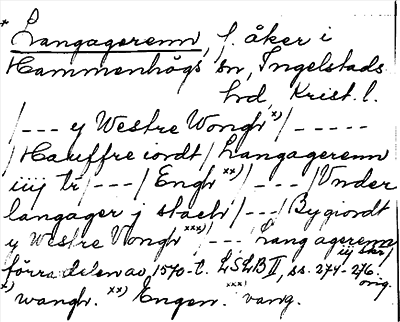 * Langagerenn, f. åker i
Hammenhögs sn, Ingelstads
hd, Krist. l.
/--- y Westre Wongh x)/-----
/Hauffre iordt/Langagerenn
iiij tr/---/Engh xx)/---/Vnder
langager j stæch/---/Bygiordt
y Westre Vongh xxx)/---/Langagerenn
iij skr/
förra delen av 1570-t. LSLB II, ss. 274-276.
orig.
x) wangh. xx) Engen. xxx) vang.